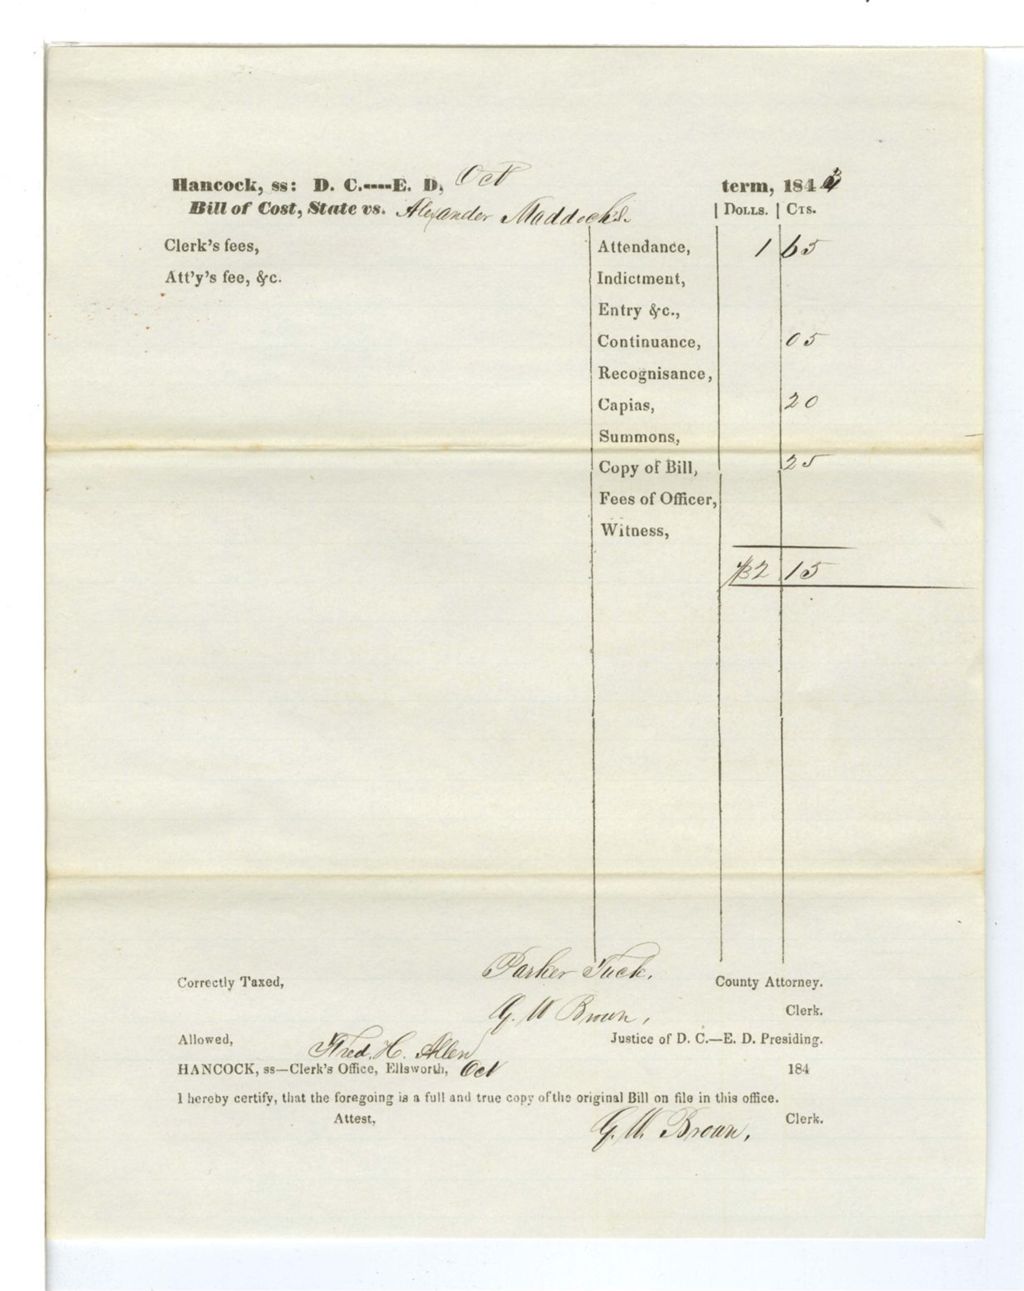 Hancock, ss: D. C.----E. D, Oct term, 184
Bill of Cost, State vs. Alexander Maddocks. | Dolls. | Cts.
Clerk's fees, Attendance, 1 65
Att'y's fee, &c. Indictment,
Entry &c.,
Continuance, 05
Recognisance,
Capias, 20
Summons,
Copy of Bill, 25
Fees of Officer,
Witness,
$2 15
Correctly Taxed, Parker Tuck, County Attorney.
G. W Brown, Clerk.
Allowed, Fred. H. Allen Justice of D. C.—E. D. Presiding.
HANCOCK, ss—Clerk's Office, Ellsworth, Oct 184
I hereby certify, that the foregoing is a full and true copy of the original Bill on file in this office.
Attest, G. W. Brown, Clerk.